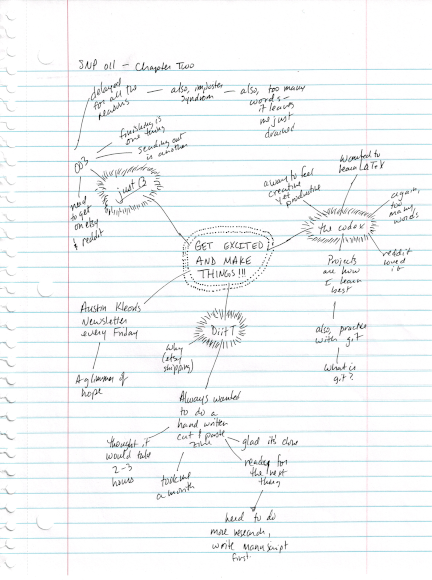 JNP 011 - Chapter Two
delayed
for all the
reasons
also, imposter
syndrome
also, too many
words -
it leaves
me just
drained
finishing is
one thing
sending out
is another
003
just B
need
to get
on etsy
& reddit
GET EXCITED
AND MAKE
THINGS!!!
a way to feel
creative
yet productive
wanted to
learn LaTeX
The codex
again,
too
many
words
reddit
loved
it
Projects
are how
I learn
best
also, practice
with git
What is
git?
Austin Kleon's
Newsletter
every Friday
A glimmer of
hope
DiiTT
Why
(etsy
shipping)
Always wanted
to do a
hand written
cut & paste
zine
thought it
would take
2-3
hours
took me
a month
glad it's done
ready for
the next
thing
need to do
more research,
write manuscript
first